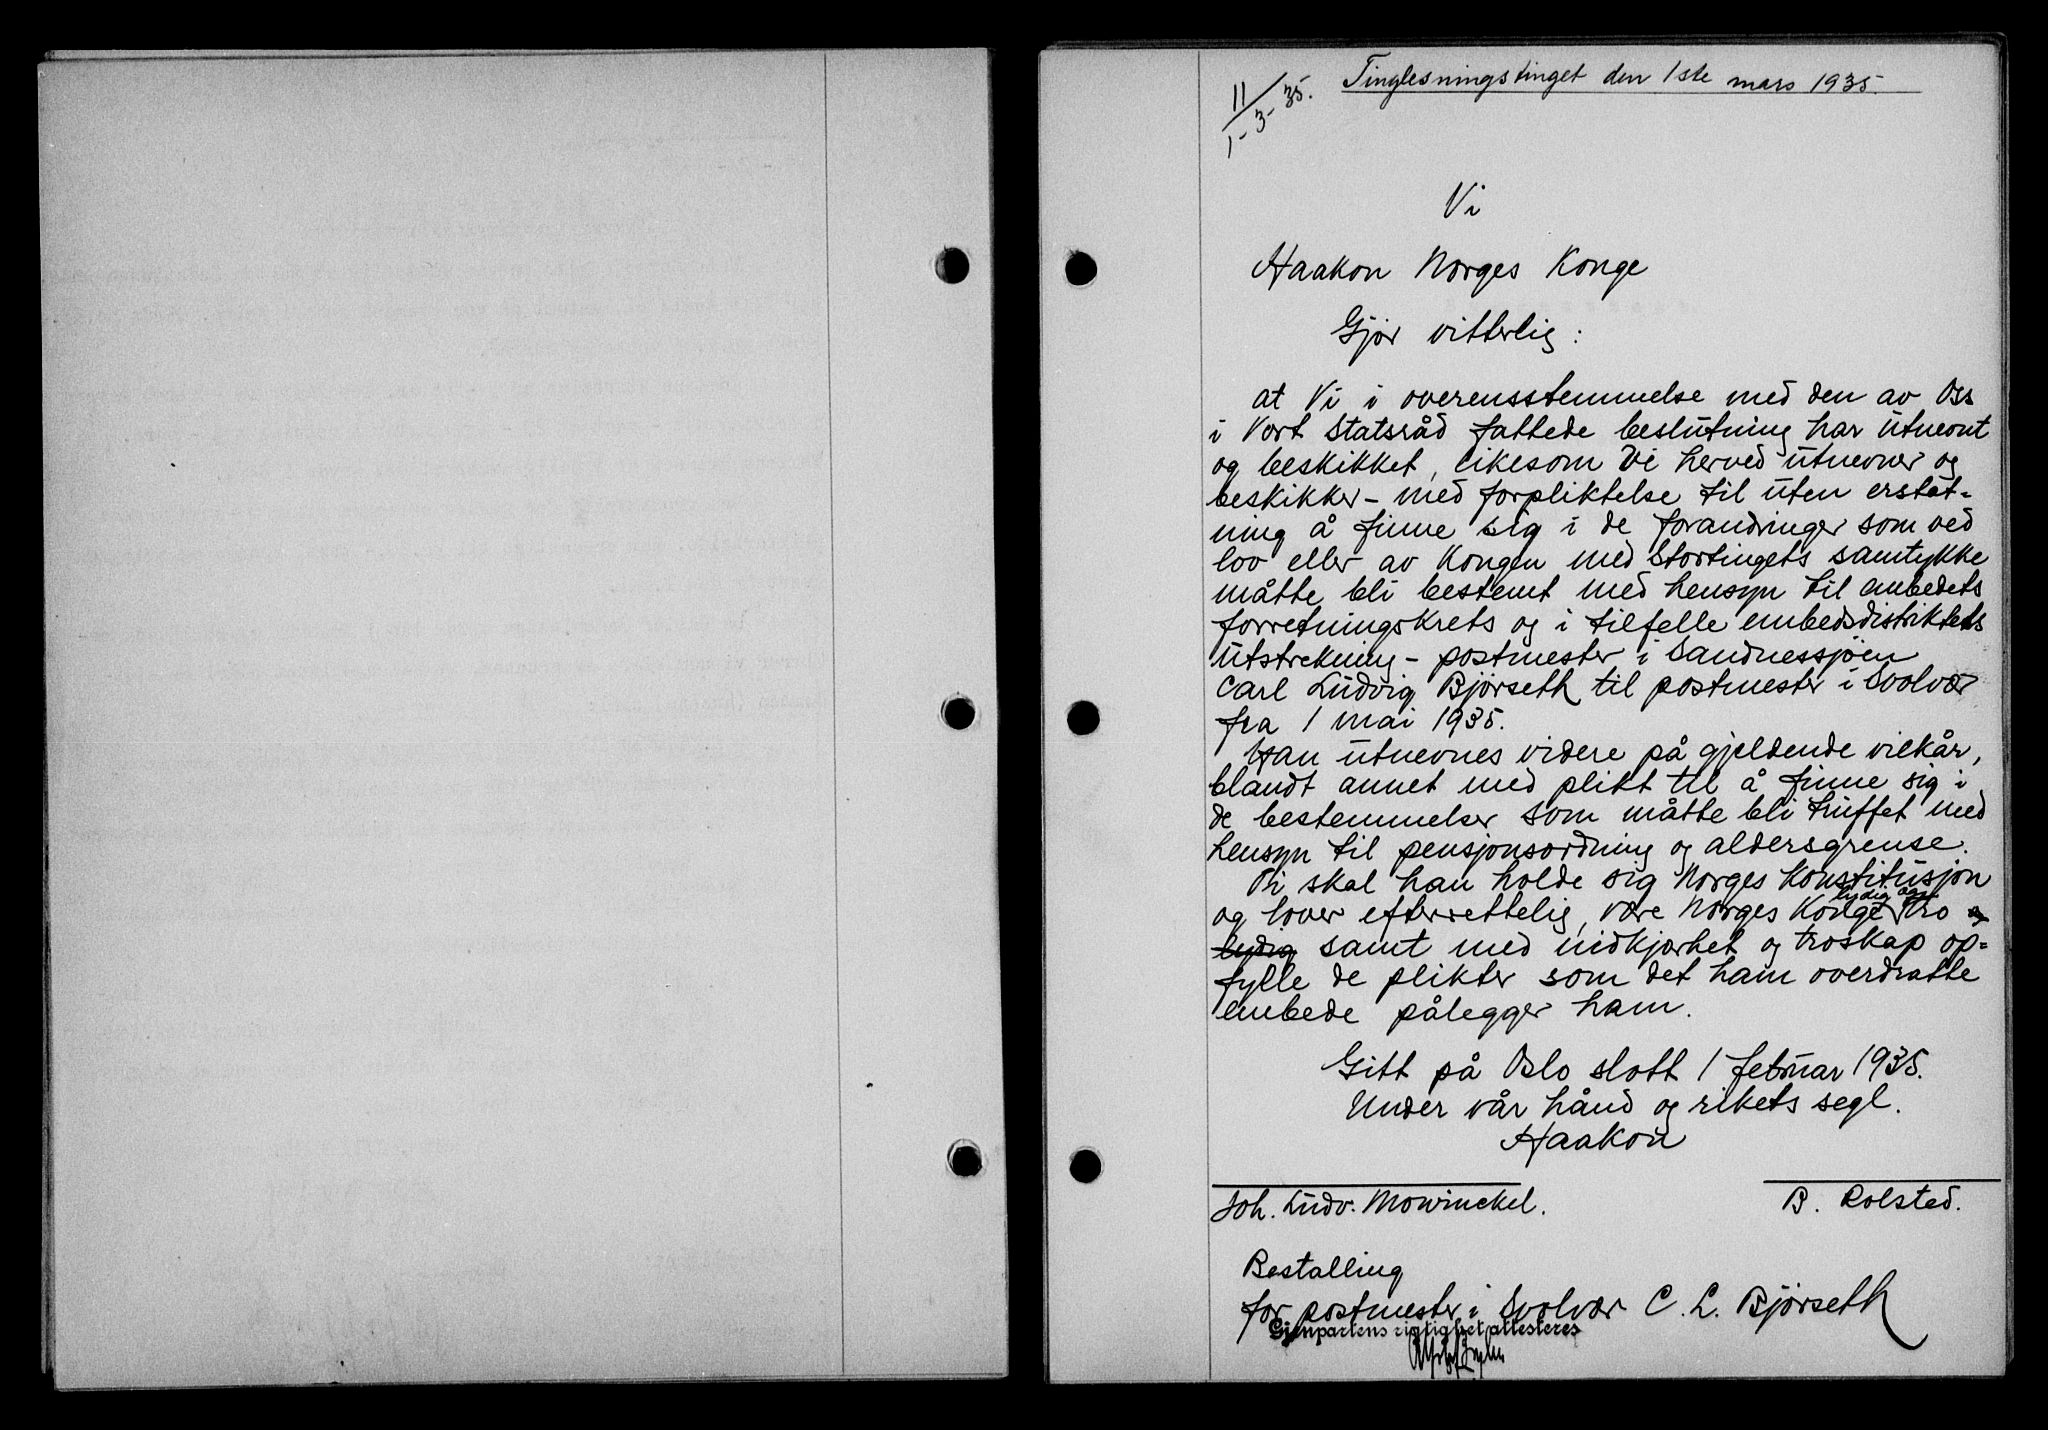 11/1-3-35.
Tinglesningstinget den 1ste mars 1935.
Vi
Haakon Norges Konge
Gjør vitterlig:
at Vi i overensstemmelse med den av Oss
i Vort Statsråd fattede beslutning har utnevnt
og beskikket, likesom Vi herved utnevner og
beskikker - med forpliktelse til uten erstat=
ning å finne sig i de forandringer som ved
lov eller av Kongen med Stortingets samtykke
måtte bli bestemt med hensyn til embedets
forretningskrets og i tilfelle embedsdistriktets
utstrekning - postmester i Sandnessjøen
Carl Ludvig Bjørseth til postmester i Svolvær
fra 1 mai 1935.
Han utnevnes videre på gjeldende vilkår,
blandt annet med plikt til å finne sig i
de bestemmelser som måtte bli truffet med
hensyn til pensjonsordning og aldersgrense.
Ti skal han holde sig Norges Konstitusjon
og lover efterrettelig, være Norges Konge lydig og tro og
lydig samt med nidkjærhet og troskap op=
fylle de plikter som det ham overdratte
embede pålegger ham.
Gitt på Oslo slott 1 februar 1935.
Under vår hånd og rikets segl.
Haakon
Joh. Ludv. Mowinckel.
B. Rolsted.
Bestalling
for postmester i Svolvær C. L. Bjørseth
Gjenpartens rigtighet attesteres